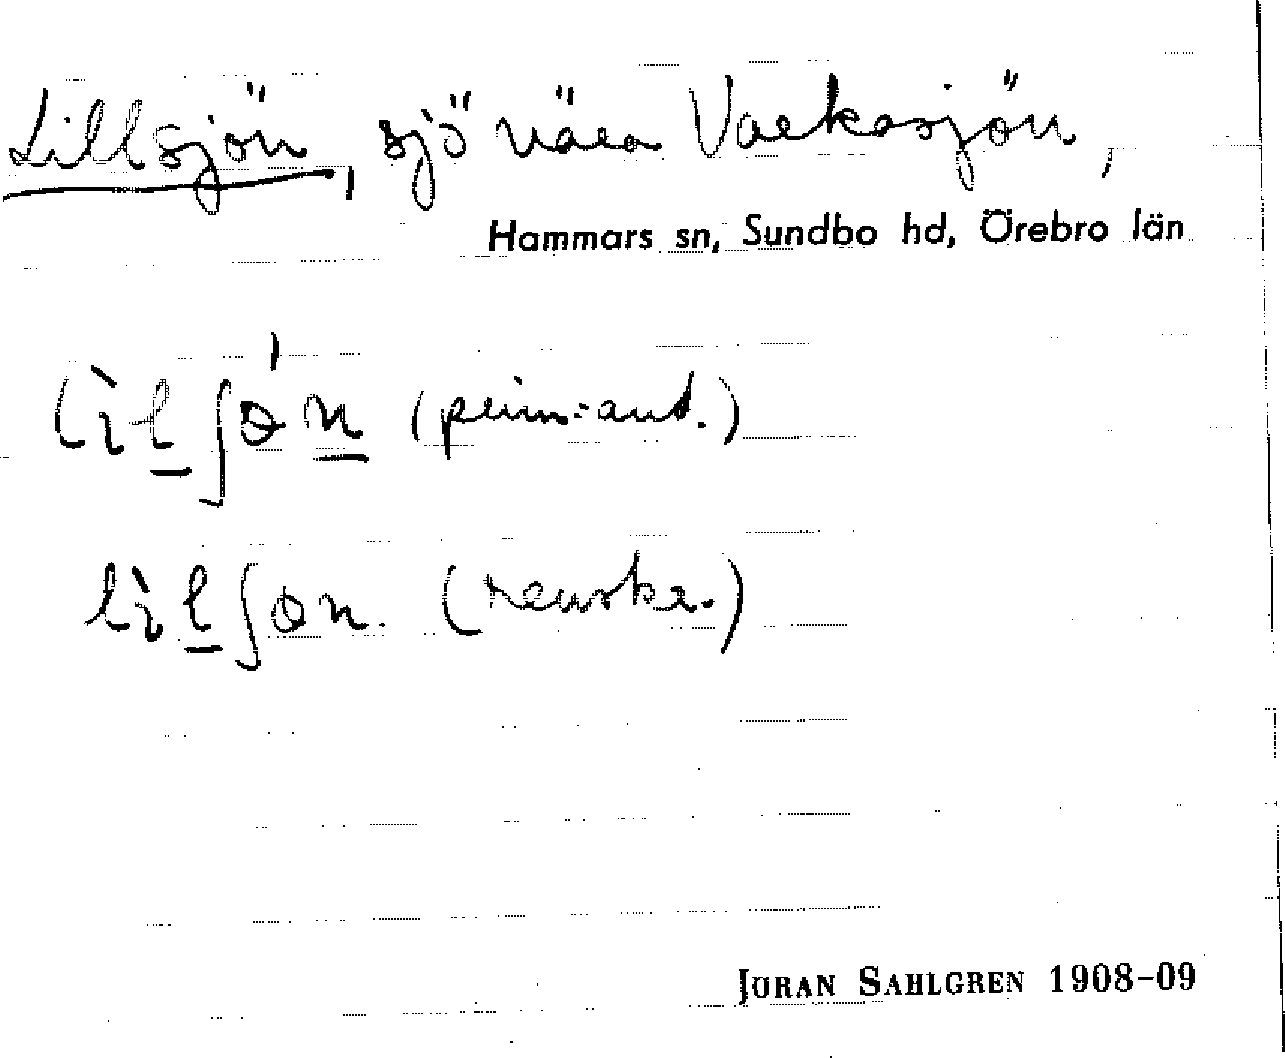 Lillsjön, sjö nära Vaekasjön,
Hammars sn, Sundbo hd, Örebro län
lìlʃön (prim-and.)
lìlʃøn. (renskr.)
JÖRAN SAHLGREN 1908-09